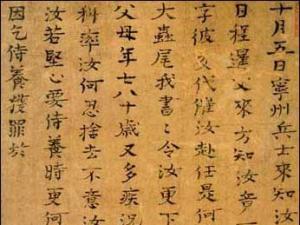 十月五日寧州兵士來知汝
日程暹父來方知汝竟一
字彼交代催汝赴任是何
大蟲尾我書〻令汝更下
父母年七八十歲又多疾況
科率汝何忍捨去不意汝
汝若堅心要侍養時更何
因乞侍養獲罪於